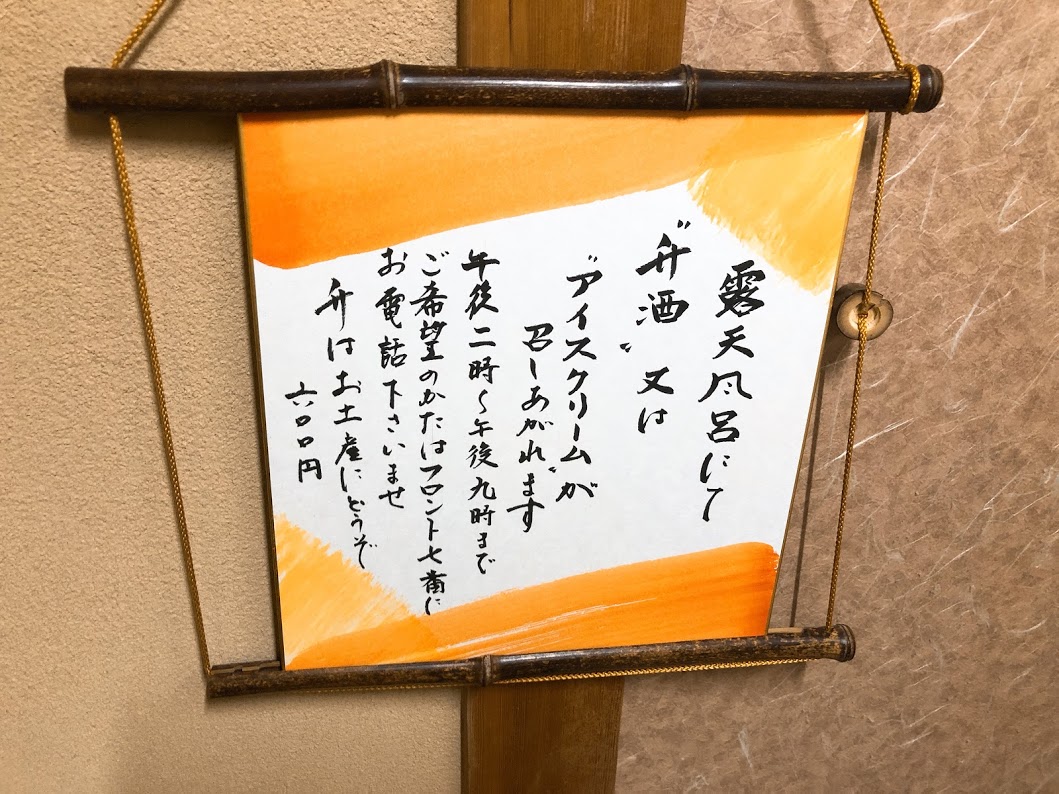 露天風呂にて
"升酒" 又は
"アイスクリーム"が
召しあがれます
午後二時～午後九時まで
ご希望のかたはフロント七番に
お電話下さいませ
升はお土産にどうぞ
六〇〇円